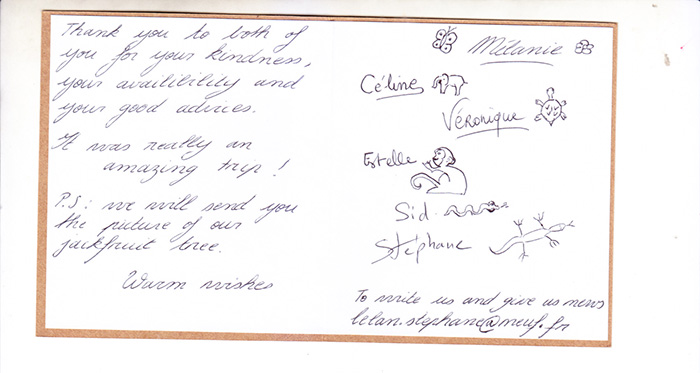 Thank you to both of
you for your kindness,
your availibility and
your good advices.
It was really an
amazing trip !
P.S : we will send you
the picture of our
jackfruit tree.
Warm wishes
Mélanie
Céline
Véronique
Estelle
Sid
Stéphane
To write us and give us news
lelan.stephane@neuf.fr